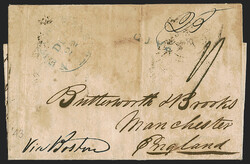 Butterworth & Brooks
Manchester
England
Via Boston